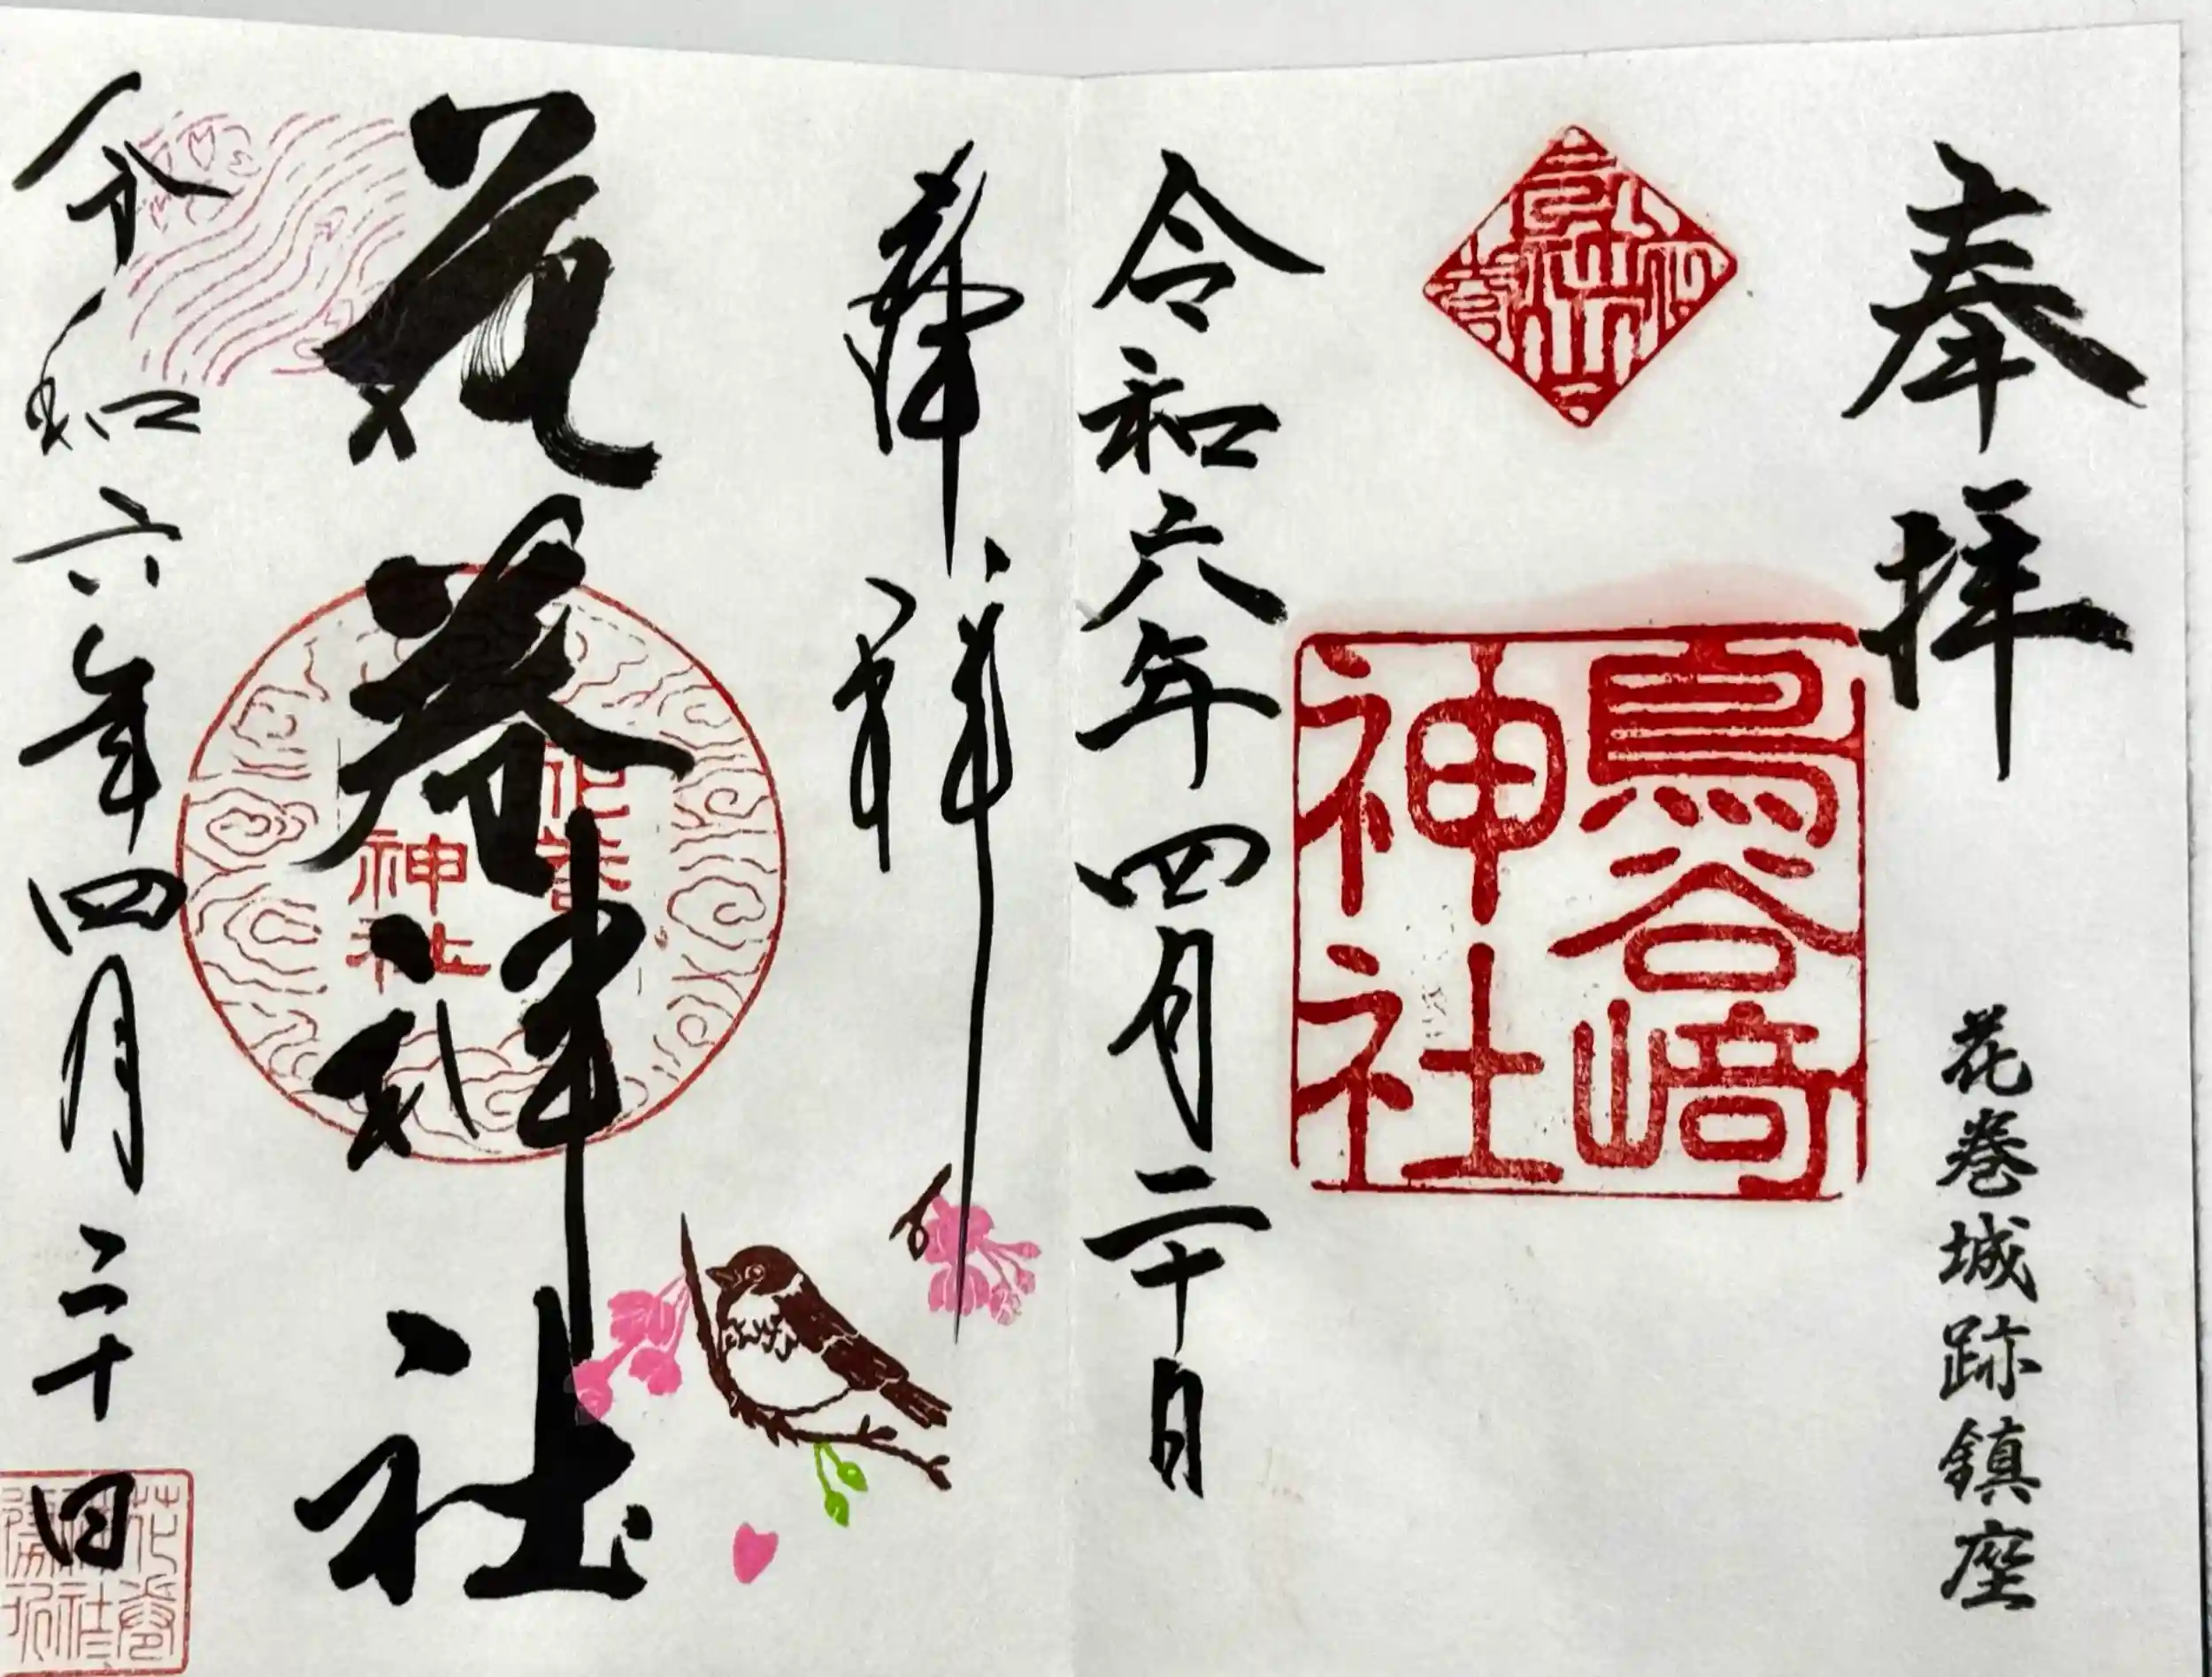 奉拝
花巻城跡鎮座
鳥谷崎
神社
令和六年四月二十日
奉拝
花巻神社
花巻
神社
令和六年四月二十日
花巻
神社